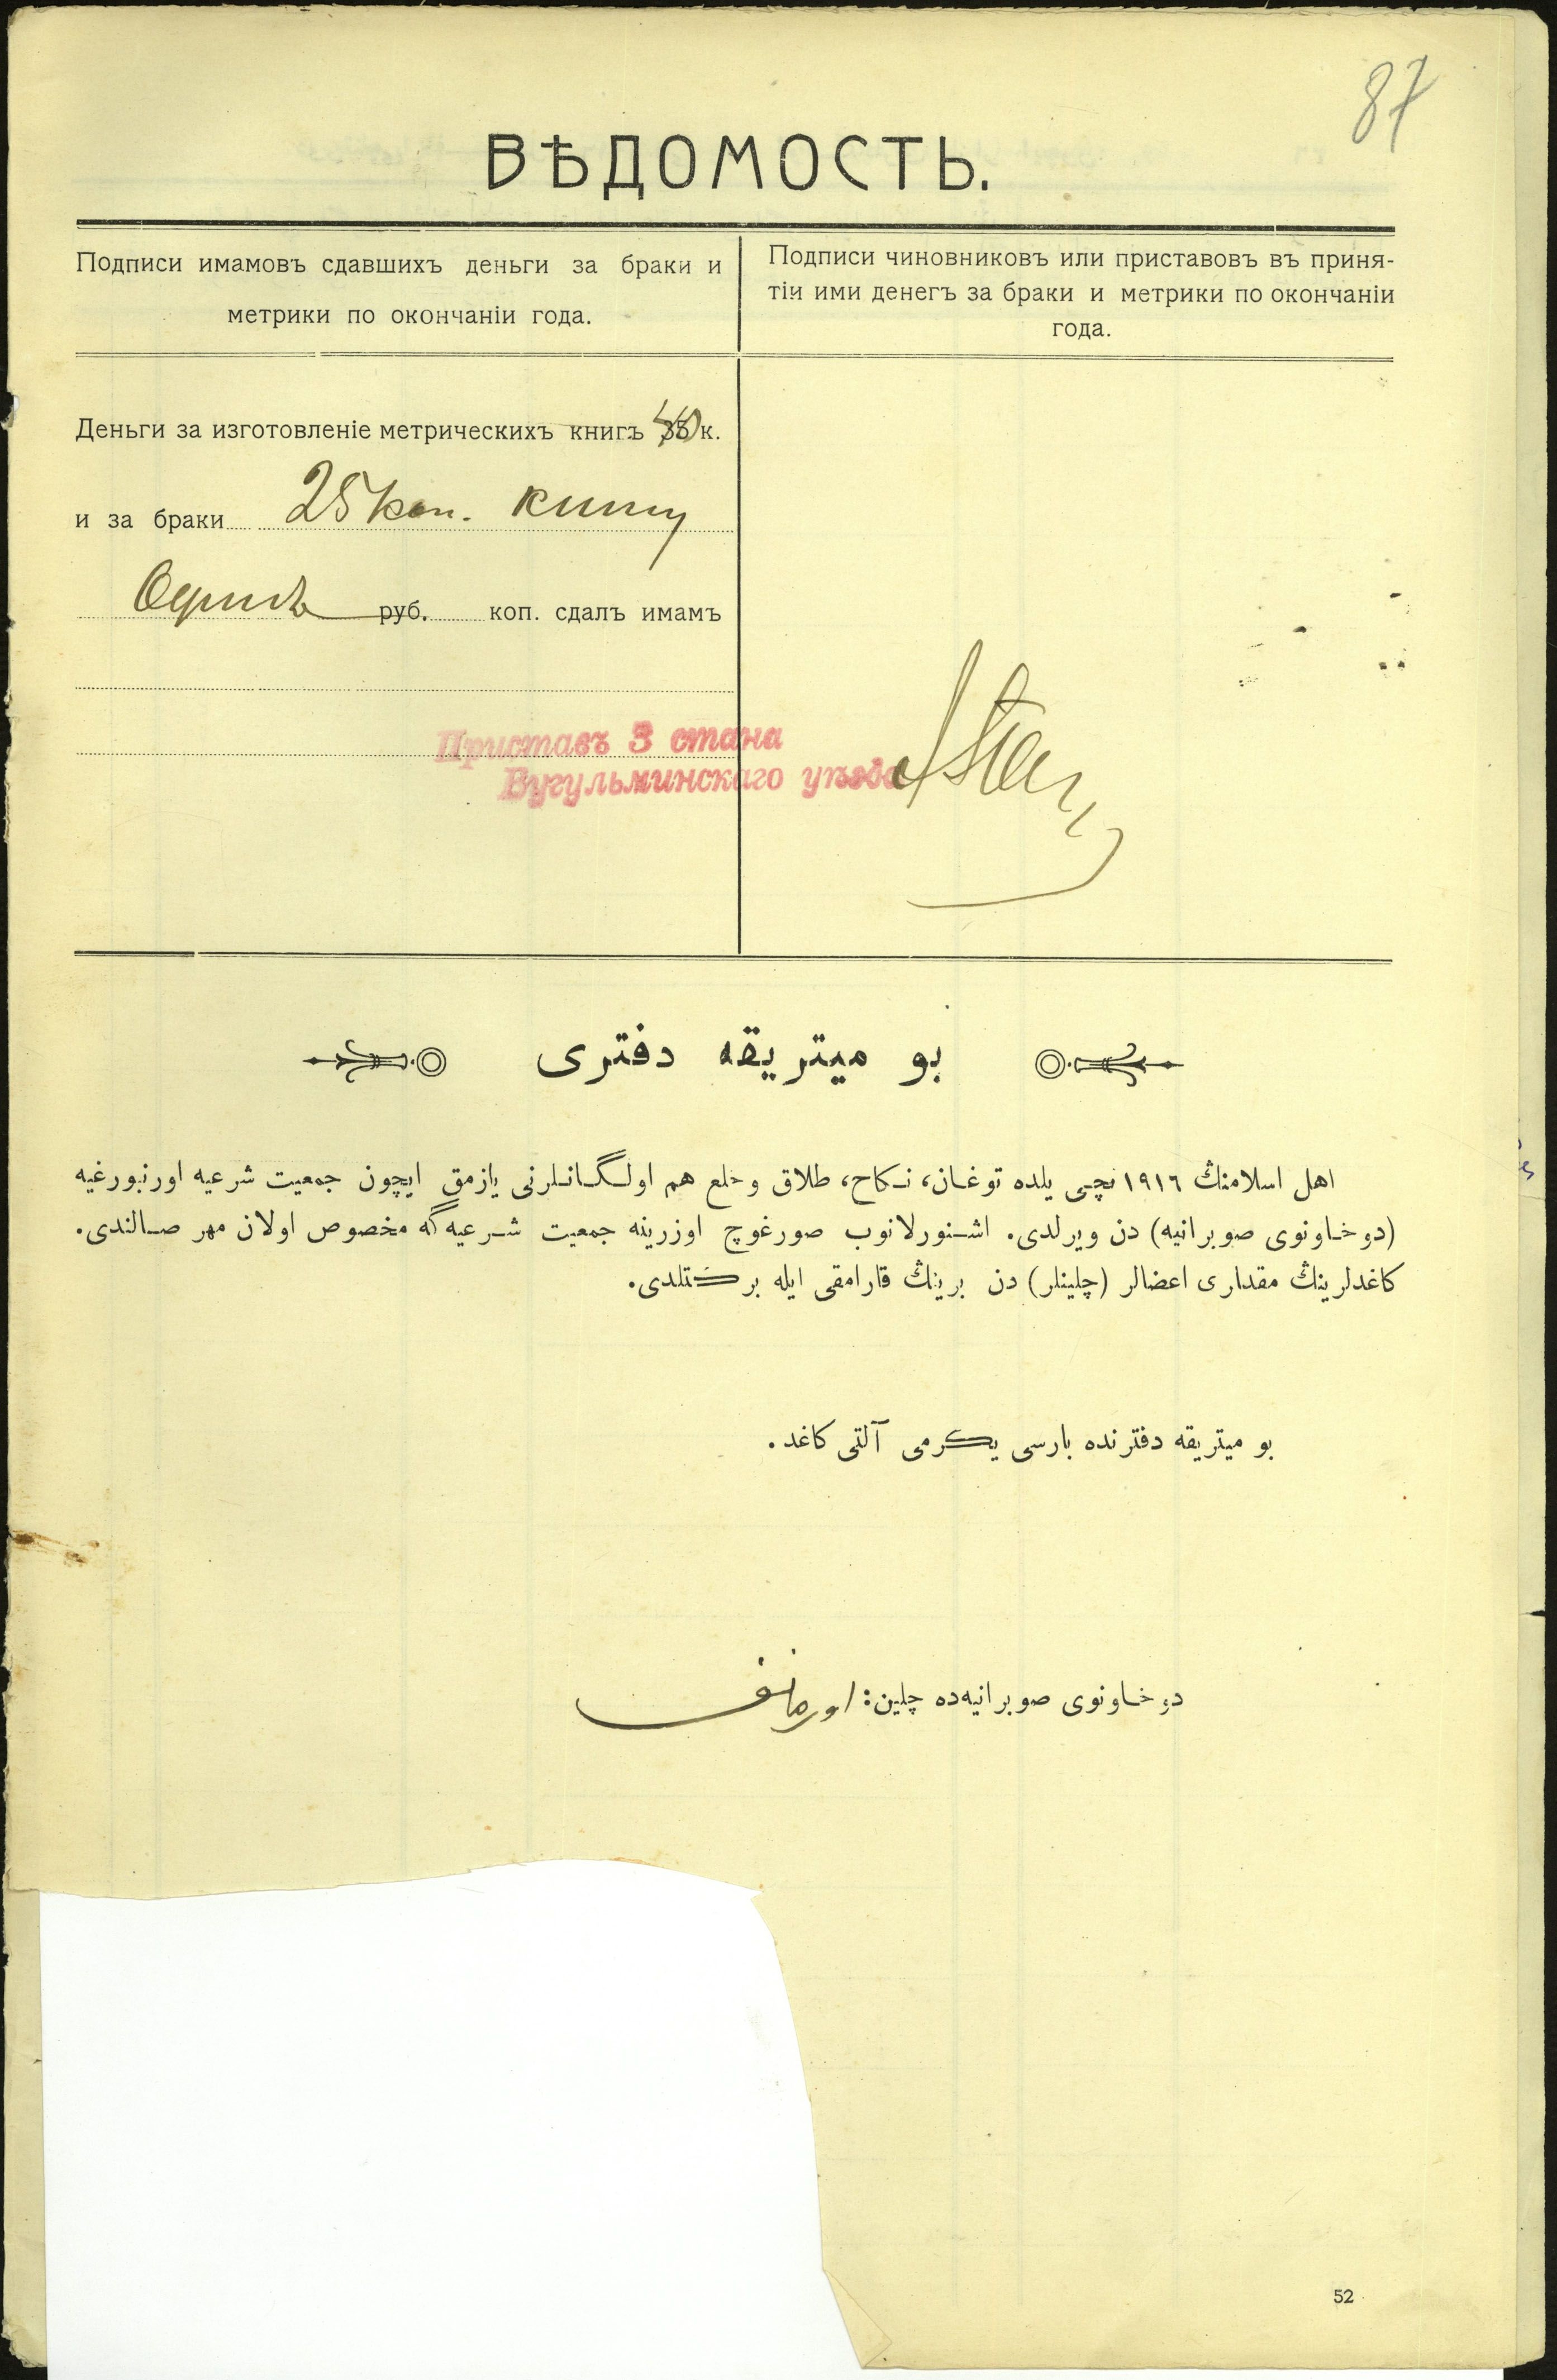 87
ВѢДОМОСТЬ.
Подписи имамовъ сдавшихъ деньги за браки и
метрики по окончаніи года.
Подписи чиновниковъ или приставовъ въ приня-
тіи ими денегъ за браки и метрики по окончаніи
года.
Деньги за изготовленіе метрическихъ книгъ 40 к.
и за браки 25 коп.
руб. коп. сдалъ имамъ
Приставъ 3 стана
Бугульминскаго уѣзда
بو ميتريقه دفترى
اهل اسلامنڭ ١٩١٦ نچى يلده توغان، نكاح، طلاق وخلع هم اولگانلرنى يازمق ايچون جمعيت شرعيه اورنبورغيه
(دوخاونوى صوبرانيه) دن ويرلدى. اشنورلانوب صورغوچ اوزرينه جمعيت شرعيه گه مخصوص اولان مهر صالندى.
كاغدلرينڭ مقدارى اعضالر (چلينلر) دن برينڭ قارامقى ايله بركتلدى.
بو ميتريقه دفترنده بارسى يكرمى آلتى كاغد.
دوخاونوى صوبرانيه‌ده چلين:
52